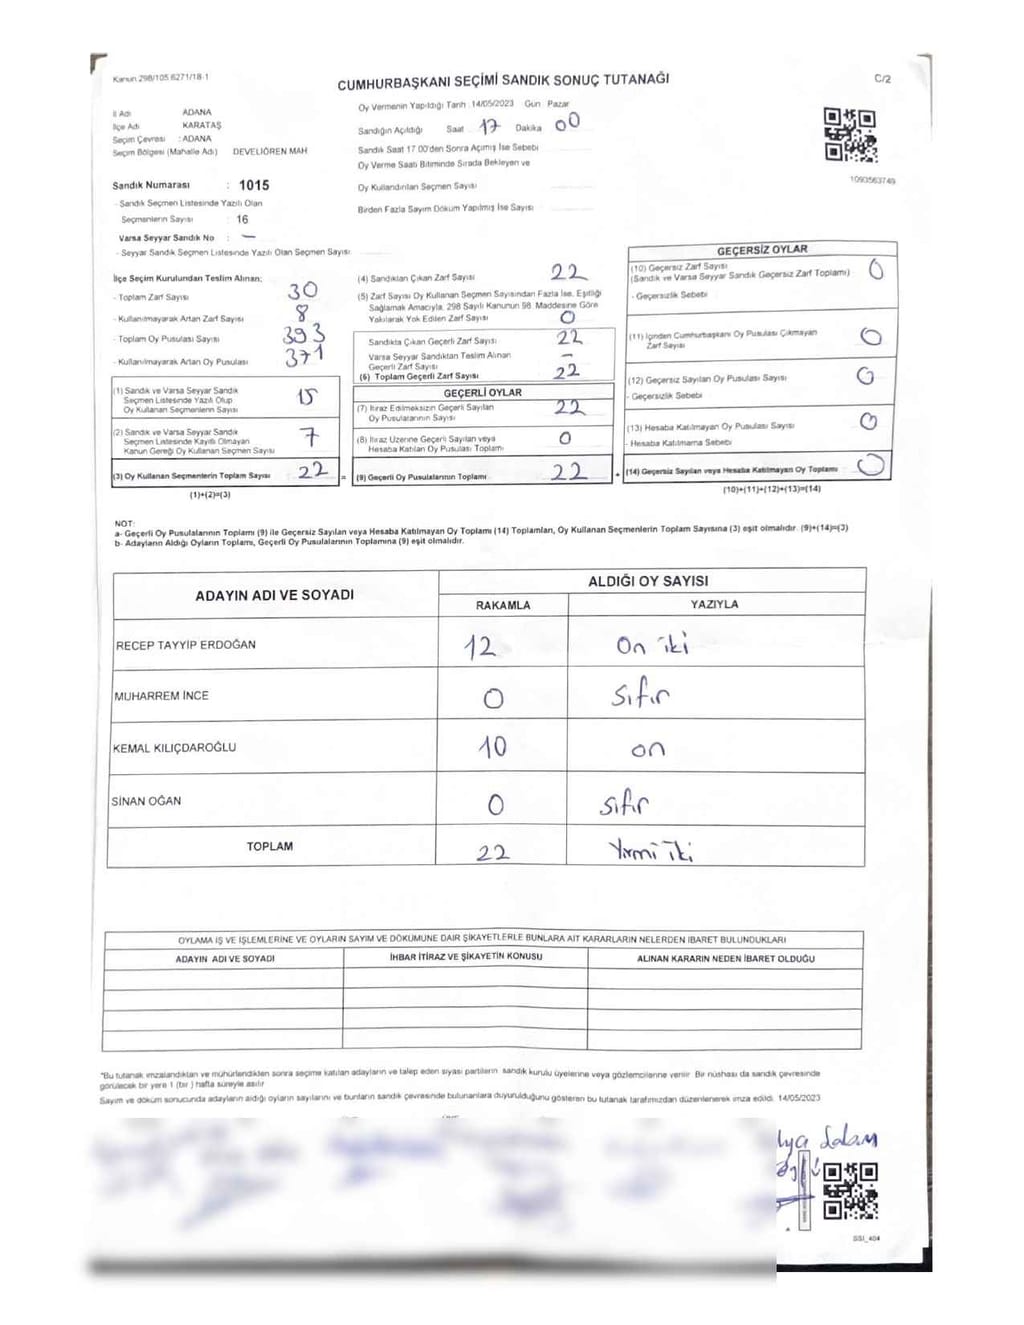 Kanun 298/105 6271/18-1
CUMHURBAŞKANI SEÇİMİ SANDIK SONUÇ TUTANAĞI
C/2
İl Adı ADANA
İlçe Adı KARATAŞ
Seçim Çevresi : ADANA
Seçim Bölgesi (Mahalle Adı) DEVELİÖREN MAH
Sandık Numarası : 1015
- Sandık Seçmen Listesinde Yazılı Olan
Seçmenlerin Sayısı 16
Varsa Seyyar Sandık No : —
- Seyyar Sandık Seçmen Listesinde Yazılı Olan Seçmen Sayısı
Oy Vermenin Yapıldığı Tarih 14/05/2023 Gün Pazar
Sandığın Açıldığı Saat 17 Dakika 00
Sandık Saat 17 00'den Sonra Açımış İse Sebebi
Oy Verme Saati Bitiminde Sırada Bekleyen ve
Oy Kullandırılan Seçmen Sayısı
Birden Fazla Sayım Döküm Yapılmış İse Sayısı
1093563749
İlçe Seçim Kurulundan Teslim Alınan;
- Toplam Zarf Sayısı 30
- Kullanılmayarak Artan Zarf Sayısı 8
- Toplam Oy Pusulası Sayısı 393
- Kullanılmayarak Artan Oy Pusulası 371
(1) Sandık ve Varsa Seyyar Sandık
Seçmen Listesinde Yazılı Olup
Oy Kullanan Seçmenlerin Sayısı 15
(2) Sandık ve Varsa Seyyar Sandık
Seçmen Listesinde Kayıtlı Olmayan
Kanun Gereği Oy Kullanan Seçmen Sayısı 7
(3) Oy Kullanan Seçmenlerin Toplam Sayısı 22 =
(1)+(2)=(3)
(4) Sandıktan Çıkan Zarf Sayısı 22
(5) Zarf Sayısı Oy Kullanan Seçmen Sayısından Fazla İse, Eşitliği
Sağlamak Amacıyla, 298 Sayılı Kanunun 98. Maddesine Göre
Yakılarak Yok Edilen Zarf Sayısı 0
Sandıkta Çıkan Geçerli Zarf Sayısı 22
Varsa Seyyar Sandıktan Teslim Alınan
Geçerli Zarf Sayısı –
(6) Toplam Geçerli Zarf Sayısı 22
GEÇERLİ OYLAR
(7) İtiraz Edilmeksizin Geçerli Sayılan
Oy Pusulalarının Sayısı 22
(8) İtiraz Üzerine Geçerli Sayılan veya
Hesaba Katılan Oy Pusulası Toplamı 0
(9) Geçerli Oy Pusulalarının Toplamı 22 +
GEÇERSİZ OYLAR
(10) Geçersiz Zarf Sayısı 0
(Sandık ve Varsa Seyyar Sandık Geçersiz Zarf Toplamı)
- Geçersizlik Sebebi
(11) İçinden Cumhurbaşkanı Oy Pusulası Çıkmayan
Zarf Sayısı 0
(12) Geçersiz Sayılan Oy Pusulası Sayısı 0
- Geçersizlik Sebebi
(13) Hesaba Katılmayan Oy Pusulası Sayısı 0
- Hesaba Katılmama Sebebi
(14) Geçersiz Sayılan veya Hesaba Katılmayan Oy Toplamı 0
(10)+(11)+(12)+(13)=(14)
NOT:
a- Geçerli Oy Pusulalarının Toplamı (9) ile Geçersiz Sayılan veya Hesaba Katılmayan Oy Toplamı (14) Toplamları, Oy Kullanan Seçmenlerin Toplam Sayısına (3) eşit olmalıdır. (9)+(14)=(3)
b- Adayların Aldığı Oyların Toplamı, Geçerli Oy Pusulalarının Toplamına (9) eşit olmalıdır.
ADAYIN ADI VE SOYADI
ALDIĞI OY SAYISI
RAKAMLA YAZIYLA
RECEP TAYYİP ERDOĞAN 12 On iki
MUHARREM İNCE 0 Sıfır
KEMAL KILIÇDAROĞLU 10 on
SİNAN OĞAN 0 sıfır
TOPLAM 22 Yirmi iki
OYLAMA İŞ VE İŞLEMLERİNE VE OYLARIN SAYIM VE DÖKÜMÜNE DAİR ŞİKAYETLERLE BUNLARA AİT KARARLARIN NELERDEN İBARET BULUNDUKLARI
ADAYIN ADI VE SOYADI İHBAR İTİRAZ VE ŞİKAYETİN KONUSU ALINAN KARARIN NEDEN İBARET OLDUĞU
*Bu tutanak imzalandıktan ve mühürlendikten sonra seçime katılan adayların ve talep eden siyasi partilerin sandık kurulu üyelerine veya gözlemcilerine verilir Bir nüshası da sandık çevresinde
görülecek bir yere 1 (bir ) hafta süreyle asılır
Sayım ve döküm sonucunda adayların aldığı oyların sayılarını ve bunların sandık çevresinde bulunanlara duyurulduğunu gösteren bu tutanak tarafımızdan düzenlenerek imza edildi. 14/05/2023
SSI_404